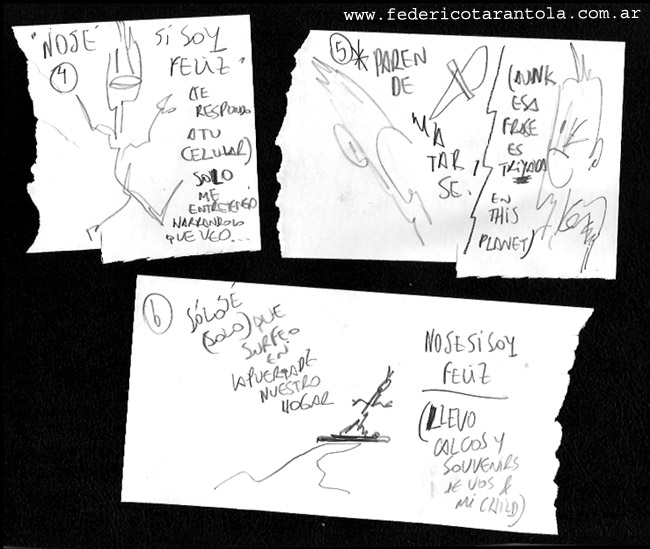 www.federicotarantola.com.ar
"NOSÉ SI SOY
FELIZ"
4
(TE
RESPONDO
A TU
CELULAR)
SOLO
ME
ENTRETENGO
NARRANDO LO
QUE VEO...
5
*PAREN
DE
MA
TAR
SE.
(AUNK
ESA
FRASE
ES
TRIYADA
EN
THIS
PLANET)
6
SÓLO SÉ
(SOLO) QUE
SURFEO
EN
LA PUERTA DE
NUESTRO
HOGAR
NO SE SI SOY
FELIZ
(LLEVO
CALCOS Y
SOUVENIRS
DE VOS &
MI CHILD)